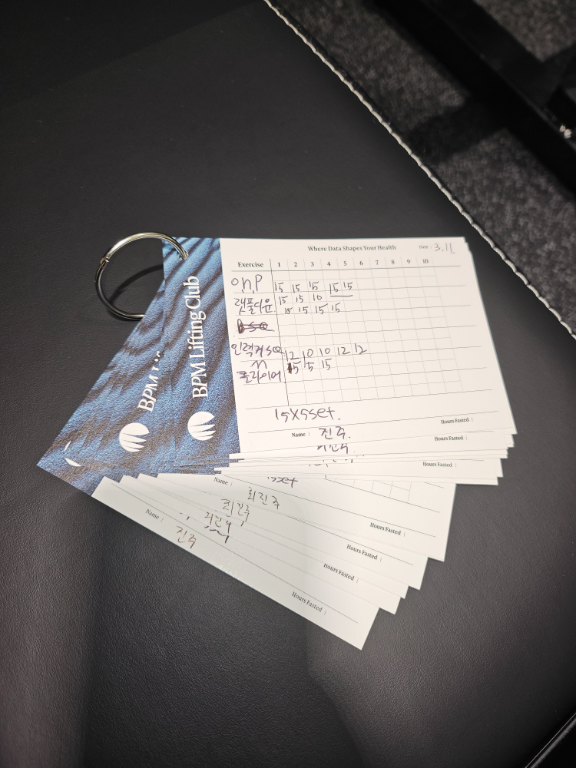 Where Data Shapes Your Health
Date : 3.11
Exercise 1 2 3 4 5 6 7 8 9 10
O.H.P 15 15 15 15 15
랫풀다운 15 15 10
15 15 15 15
인력거 SQ 12 10 10 12 12
15 15 15
플라이어
15x5set.
Hours Fasted :
Name : 진주.
Hours Fasted :
Hours Fasted :
BPM Lifting Club
BPM Li
최진주
Hours Fasted :
Hours Fasted :
Name :
진주
Hours Fasted :